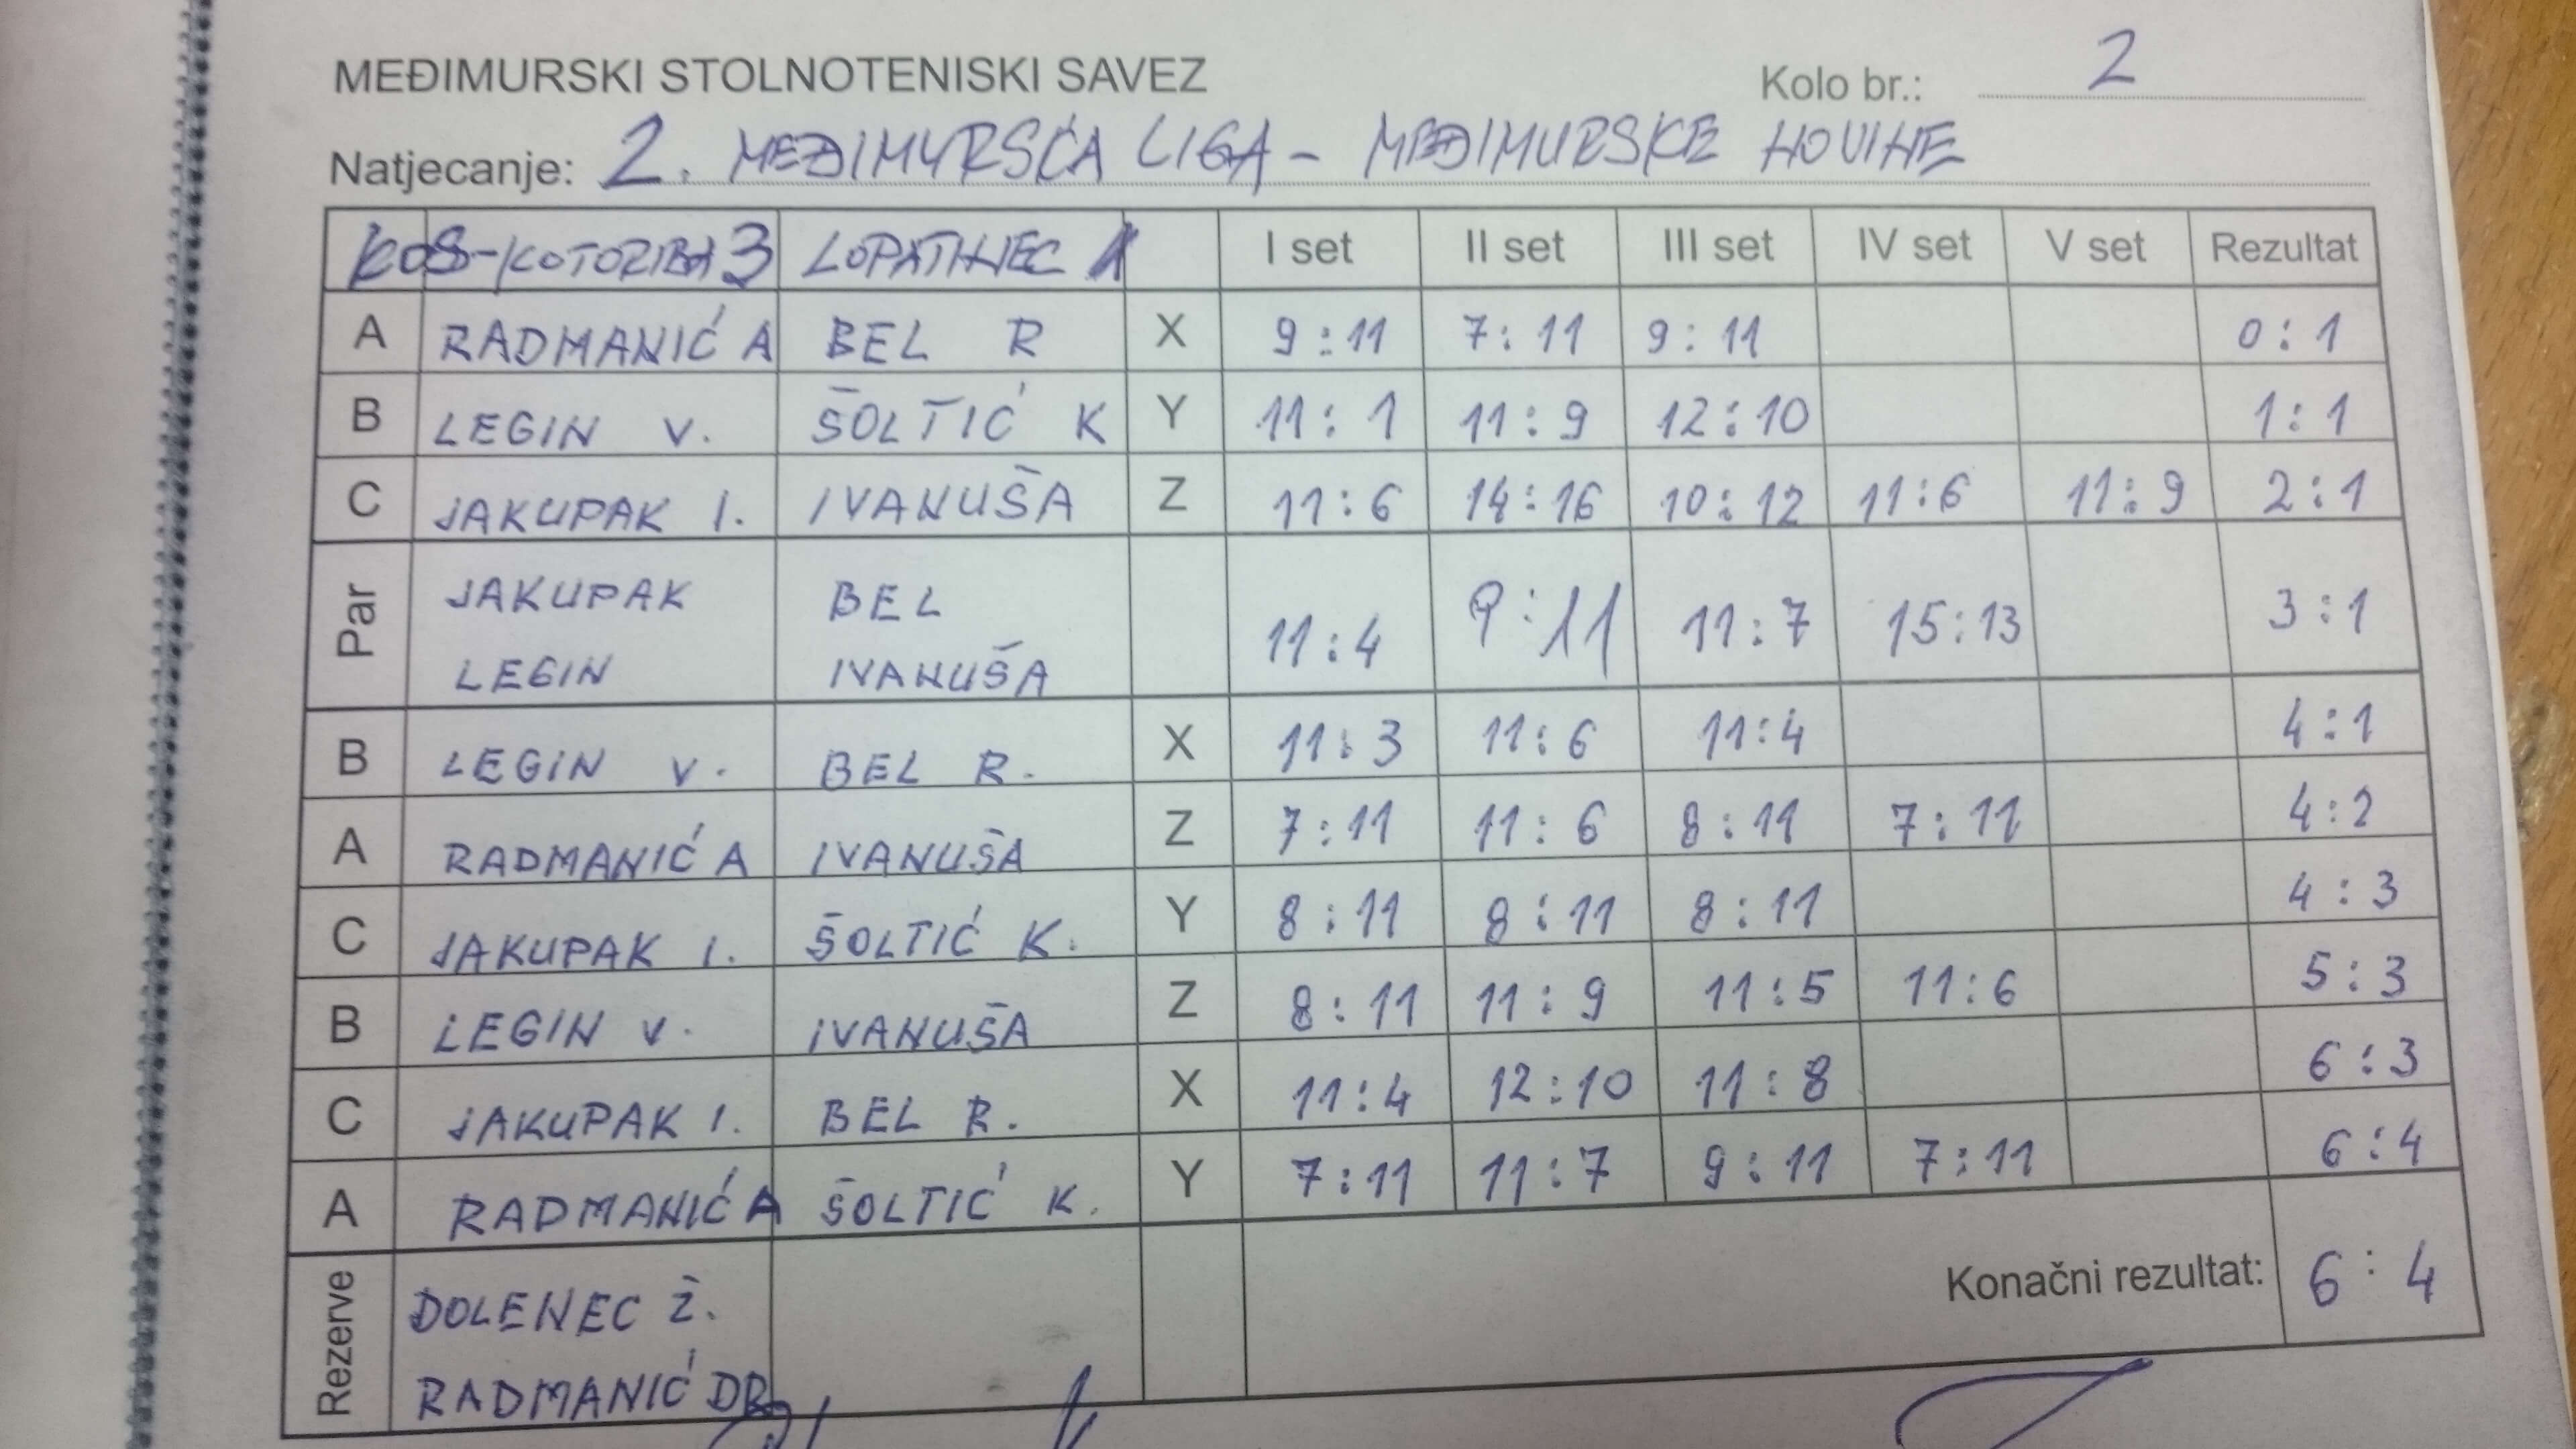 MEĐIMURSKI STOLNOTENISKI SAVEZ Kolo br.: 2
Natjecanje: 2. MEĐIMURSĆA LIGA - MEĐIMURSKE NOVINE
KOS-KOTORIBA 3 LOPATINEC 1 I set II set III set IV set V set Rezultat
A RADMANIĆ A BEL R X 9:11 7:11 9:11 0:1
B LEGIN V. ŠOLTIĆ K Y 11:1 11:9 12:10 1:1
C JAKUPAK I. IVANUŠA Z 11:6 14:16 10:12 11:6 11:9 2:1
Par JAKUPAK BEL 11:4 9:11 11:7 15:13 3:1
LEGIN IVANUŠA
B LEGIN V. BEL R. X 11:3 11:6 11:4 4:1
A RADMANIĆ A IVANUŠA Z 7:11 11:6 8:11 7:11 4:2
C JAKUPAK I. ŠOLTIĆ K. Y 8:11 8:11 8:11 4:3
B LEGIN V. IVANUŠA Z 8:11 11:9 11:5 11:6 5:3
C JAKUPAK I. BEL R. X 11:4 12:10 11:8 6:3
A RADMANIĆ A ŠOLTIĆ K. Y 7:11 11:7 9:11 7:11 6:4
Rezerve DOLENEC Ž. Konačni rezultat: 6:4
RADMANIĆ DR